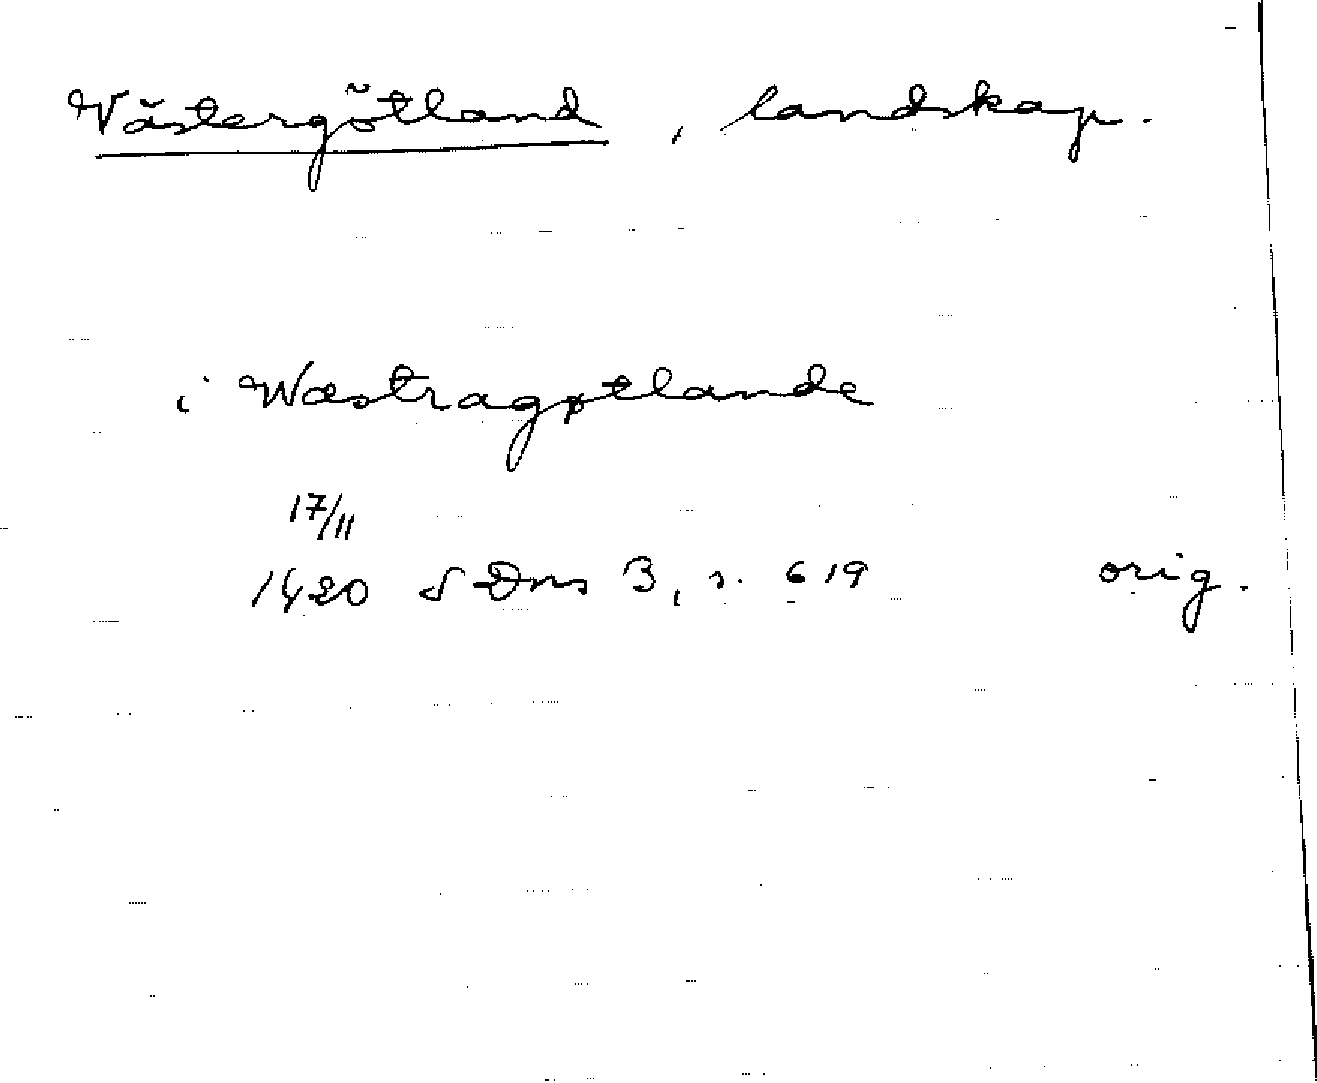 Västergötland, landskap.
i Wæstragøtlande
17/11
1420 SDns 3, s. 619 orig.